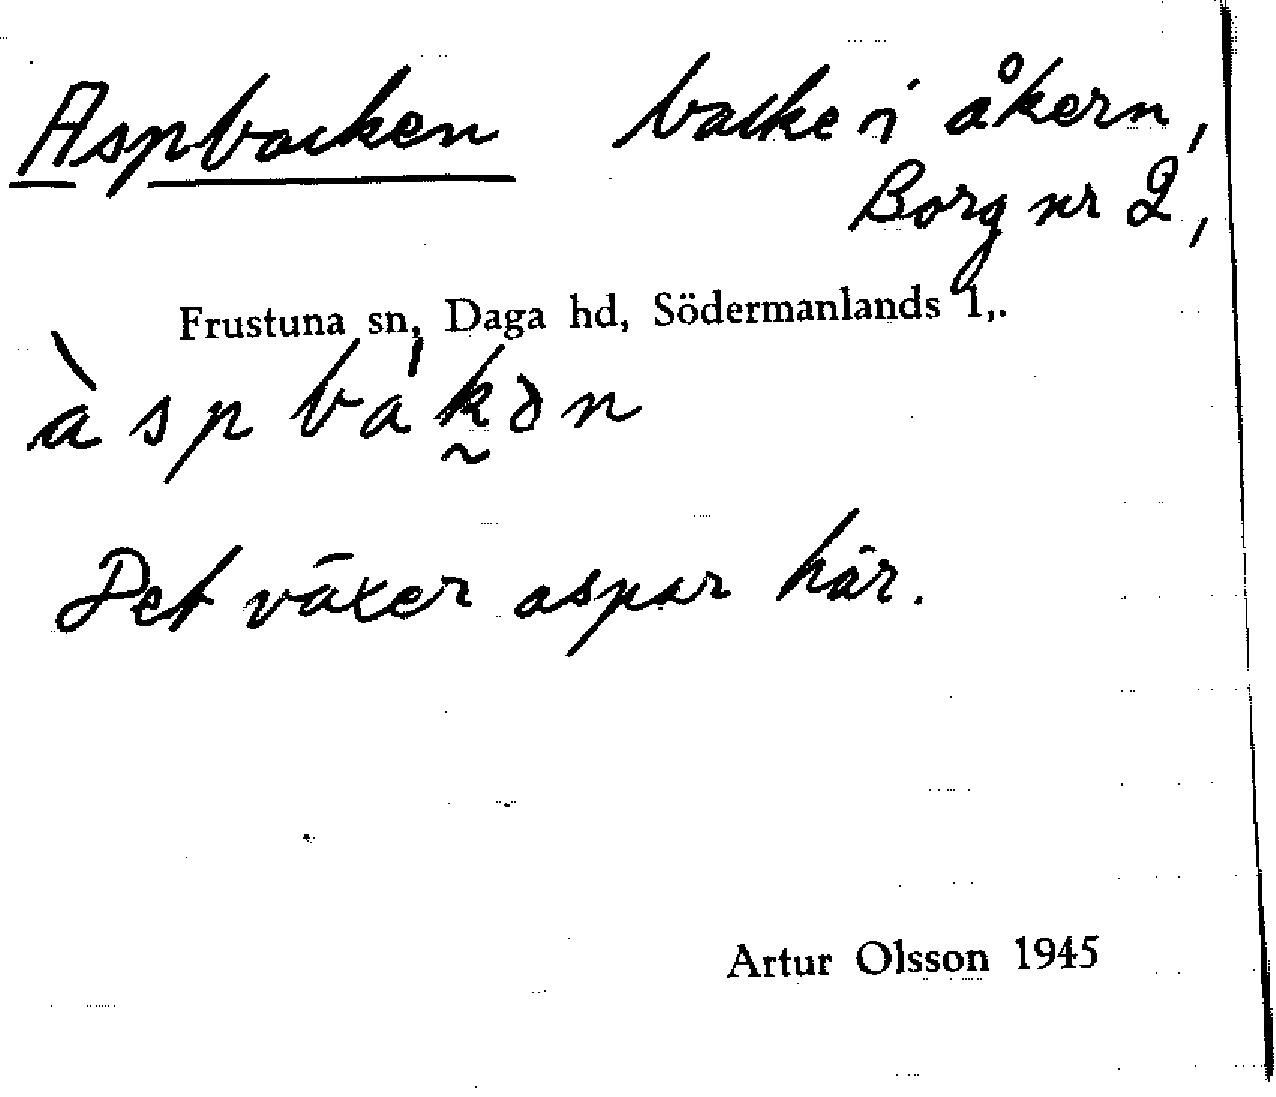 Aspbacken backe i åkern,
Borg nr 2,
Frustuna sn, Daga hd, Södermanlands l,.
àspbák̰ən
Det växer aspar här.
Artur Olsson 1945